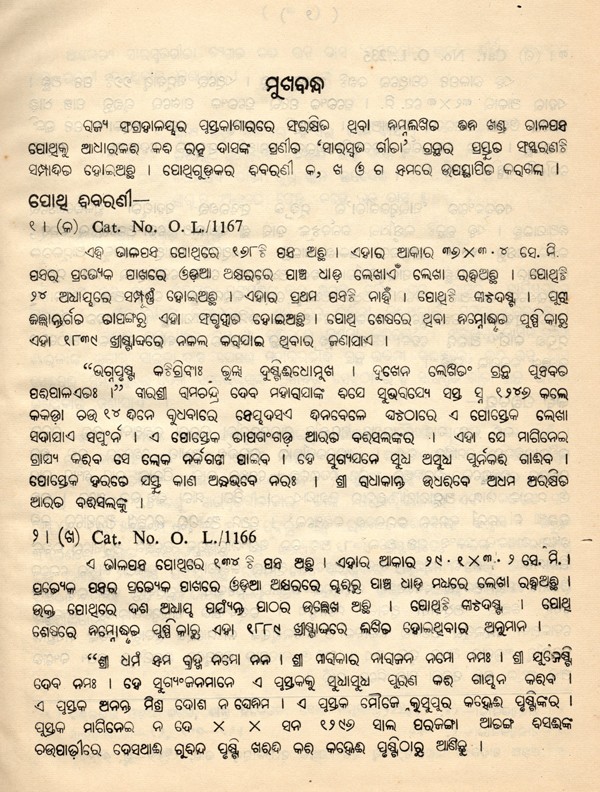 ମୁଖବନ୍ଧ
ରାଜ୍ୟ ସଂଗ୍ରହାଳୟର ପୁସ୍ତକାଗାରରେ ସଂରକ୍ଷିତ ଥିବା ନିମ୍ନଲିଖିତ ତିନି ଖଣ୍ଡ ତାଳପତ୍ର
ପୋଥିକୁ ଆଧାରକରି କବି ରତ୍ନ ଦାସଙ୍କ ପ୍ରଣୀତ ‘ସାରସ୍ୱତ ଗୀତା’ ଗ୍ରନ୍ଥର ପ୍ରସ୍ତୁତ ସଂସ୍କରଣଟି
ସମ୍ପାଦିତ ହୋଇଅଛି । ପୋଥିଗୁଡ଼ିକର ବିବରଣୀ କ, ଖ ଓ ଗ କ୍ରମରେ ଉପସ୍ଥାପିତ କରାଗଲା ।
ପୋଥି ବିବରଣୀ—
୧ । (କ) Cat. No. O. L./1167
ଏହି ତାଳପତ୍ର ପୋଥିରେ ୧୬୮ଟି ପତ୍ର ଅଛି । ଏହାର ଆକାର ୩୬×୩·୪ ସେ. ମି.
ପତ୍ରର ପ୍ରତ୍ୟେକ ପାଖରେ ଓଡ଼ିଆ ଅକ୍ଷରରେ ପାଞ୍ଚ ଧାଡ଼ି ଲେଖାଏଁ ଲେଖା ରହିଅଛି । ପୋଥିଟି
୨୪ ଅଧ୍ୟାୟରେ ସମ୍ପୂର୍ଣ୍ଣ ହୋଇଅଛି । ଏହାର ପ୍ରଥମ ପତ୍ରଟି ନାହିଁ । ପୋଥିଟି କୀଟଦଷ୍ଟ । ପୁରୀ
ଜିଲ୍ଲାନ୍ତର୍ଗତ ତାପଙ୍ଗରୁ ଏହା ସଂଗୃହୀତ ହୋଇଅଛି । ପୋଥି ଶେଷରେ ଥିବା ନିମ୍ନୋଦ୍ଧୃତ ପୁଷ୍ପିକାରୁ
ଏହା ୧୮୩୯ ଖ୍ରୀଷ୍ଟାବ୍ଦରେ ନକଲ କରାଯାଇ ଥିବାର ଜଣାଯାଏ ।
“ଭଗ୍ନପୃଷ୍ଟ କଟିଗ୍ରିବାଃ ତୁଲ୍ୟ ଦୃଷ୍ଟିରଧୋମୁଖ । ଦୁଃଖେନ ଲେଖିତଂ ଗ୍ରନ୍ଥ ପୁତ୍ରବତ
ପରିପାଳଏତଃ ।” ବୀରଶ୍ରୀ ରାମଚନ୍ଦ୍ର ଦେବ ମହାରାଜାଙ୍କ ବିଜେ ସୁଭରାଜ୍ୟେ ସସ୍ତ ସ୍ନ ୧୨୪୭ କଲେ
କକଡ଼ା ଚଉ ୧୪ ଦିନେ ବୁଧବାରେ ଦିନବେଳେ ଏ ପୋସ୍ତେକ ଲେଖା
ସଂପୂର୍ନ । ଏ ପୋସ୍ତେକ ତାପଗଂଗଡ଼ ଆରତ ବରିସଲଙ୍କର । ଏହା ଯେ ମାଗିନେଇ
ଗ୍ରାସ୍ୟ କରିବ ସେ ଲୋକ ନର୍କଗତୀ ପାଇବ । ହେ ସୁଗ୍ୟଜନେ ସୁଧ ଅସୁଧ ପୂର୍ନକରି ଗାଇବ ।
ପୋସ୍ତେକ ହରତେ ସସ୍ତୁ କାଣ ଅନ୍ଧଭବେ ନରଃ । ଶ୍ରୀ ରାଧାକାନ୍ତ ଉଧରିବେ ଅଧମ ଅରକ୍ଷିତ
ଆରତ ବରିସଲଙ୍କୁ ।
୨ । (ଖ) Cat. No. O. L./1166
ଏ ତାଳପତ୍ର ପୋଥିରେ ୧୩୪ ଟି ପତ୍ର ଅଛି । ଏହାର ଆକାର ୨୯·୧×୩·୨ ସେ. ମି. ।
ପ୍ରତ୍ୟେକ ପତ୍ରର ପ୍ରତ୍ୟେକ ପାଖରେ ଓଡ଼ିଆ ଅକ୍ଷରରେ ଚାରିରୁ ପାଞ୍ଚ ଧାଡ଼ି ମଧ୍ୟରେ ଲେଖା ରହିଅଛି ।
ଉକ୍ତ ପୋଥିରେ ଦଶ ଅଧ୍ୟାୟ ପର୍ଯ୍ୟନ୍ତ ପାଠର ଉଲ୍ଲେଖ ଅଛି । ପୋଥିଟି କୀଟଦଷ୍ଟ । ପୋଥି
ଶେଷରେ ନିମ୍ନୋଦ୍ଧୃତ ପୁଷ୍ପିକାରୁ ଏହା ୧୮୮୯ ଖ୍ରୀଷ୍ଟାବ୍ଦରେ ଲିଖିତ ହୋଇଥିବାର ଅନୁମାନ ।
“ଶ୍ରୀ ଧର୍ମ ବ୍ରହ୍ମ ନମୋ ନମ । ଶ୍ରୀ ନାରାଜନ ନମୋ ନମଃ । ଶ୍ରୀ
ଦେବ ନମଃ । ହେ ସୁଗ୍ୟଂଜନମାନେ ଏ ପୁସ୍ତକକୁ ସୁଧାସୁଧ ପୁରଣ କରି ଗାୟନ କରିବ ।
ଏ ପୁସ୍ତକ ଅନନ୍ତ ମିଶ୍ର ଦୋଶ ନ ଘେନିମ । ଏ ପୁସ୍ତକ ମୌଜେ କୁସୁପୁର କହ୍ନେଇ ପୃଷ୍ଟିଙ୍କର ।
ପୁସ୍ତକ ମାଗିନେଇ ନ ଦେ × × ସନ ୧୨୯୭ ସାଲ ପରଜଙ୍ଗା ଆଡଙ୍ଗ
ଚଉପାଢ଼ୀରେ ଗୋବିନ୍ଦ ପୃଷ୍ଟି ଖରିଦ କରି କହ୍ନେଇ ପୃଷ୍ଟିଠାରୁ ଆଣିଛୁ ।